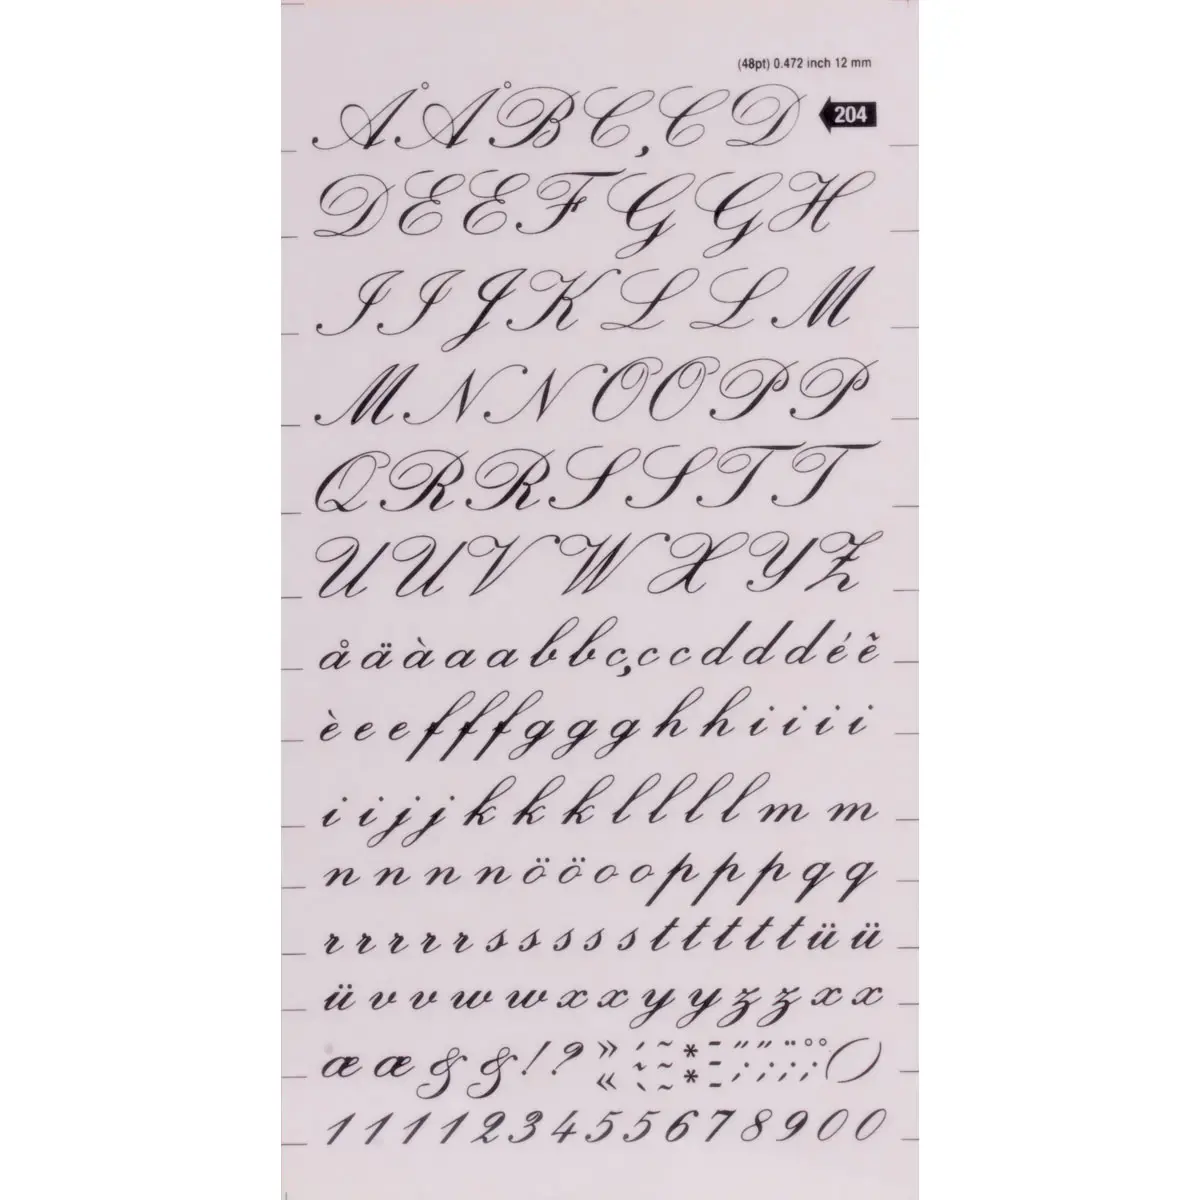 (48pt) 0.472 inch 12 mm
Å Å B C , C D 204
D E E F G G H
I I J K L L M
M N N O O P P
Q R R S S T T
U U V W X Y Z
å ä à a a b b ç c c d d d é ẽ
è e e f f f g g g h h i i i i
i i j j k k k l l l l m m
n n n n ö ö o o p p p q q
r r r r r s s s s s t t t t t ü ü
ü v v w w x x y y z z x x
æ æ & & ! ? » ´ ~ * - " " ¨ ° ° ( )
« ` ~ * - ; ; ; ;
1 1 1 1 2 3 4 5 5 6 7 8 9 0 0